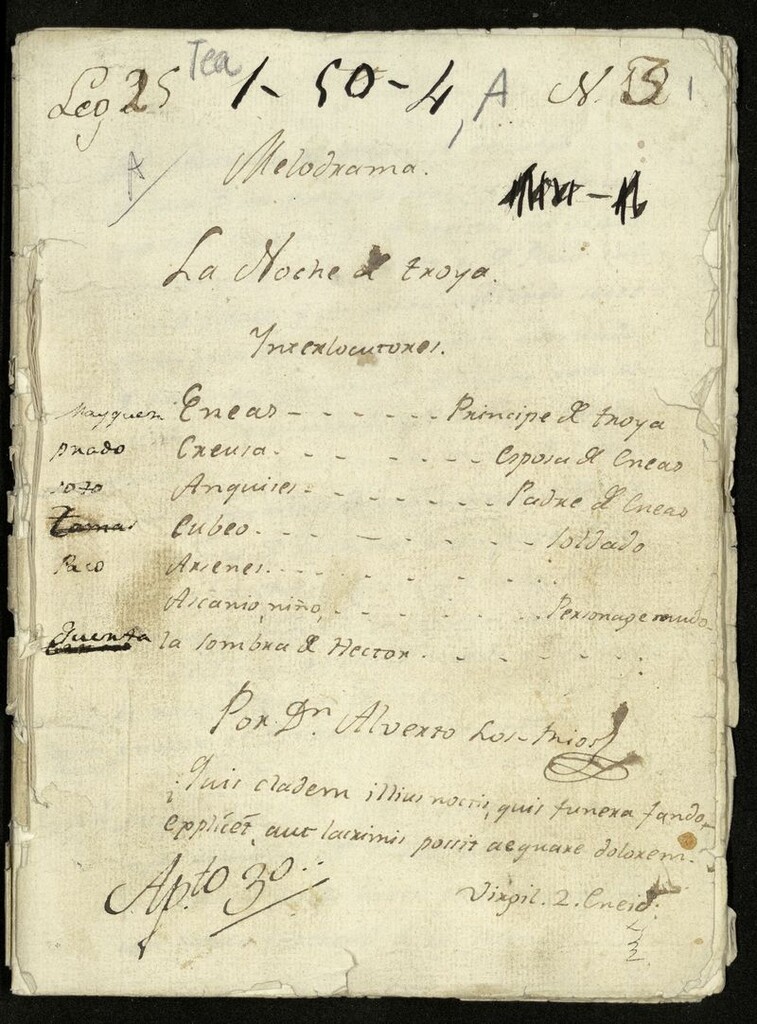 Tea
Leg 25 1-50-4, A N. 3
A
Melodrama.
La Noche de troya.
Interlocutores.
Mayquez Eneas - - - - - - - Principe de troya
prado Creusa. - - - - - - esposa de Eneas
soto Anquises - - - - - - Padre de Eneas
Tomas Eubeo. - - - - - - - soldado
Paco Arsenes. - - - - - - -
Ascanio, niño, - - - - - Personage mudo.
la sombra de Hector. - - - - - -
Por Dn. Alverto Los-rrios
Quis cladem illius noctis, quis funera fando,
explicet, aut lacrimis possit aequare dolorem.
Virgil. 2. Eneid.
Apto 3o.